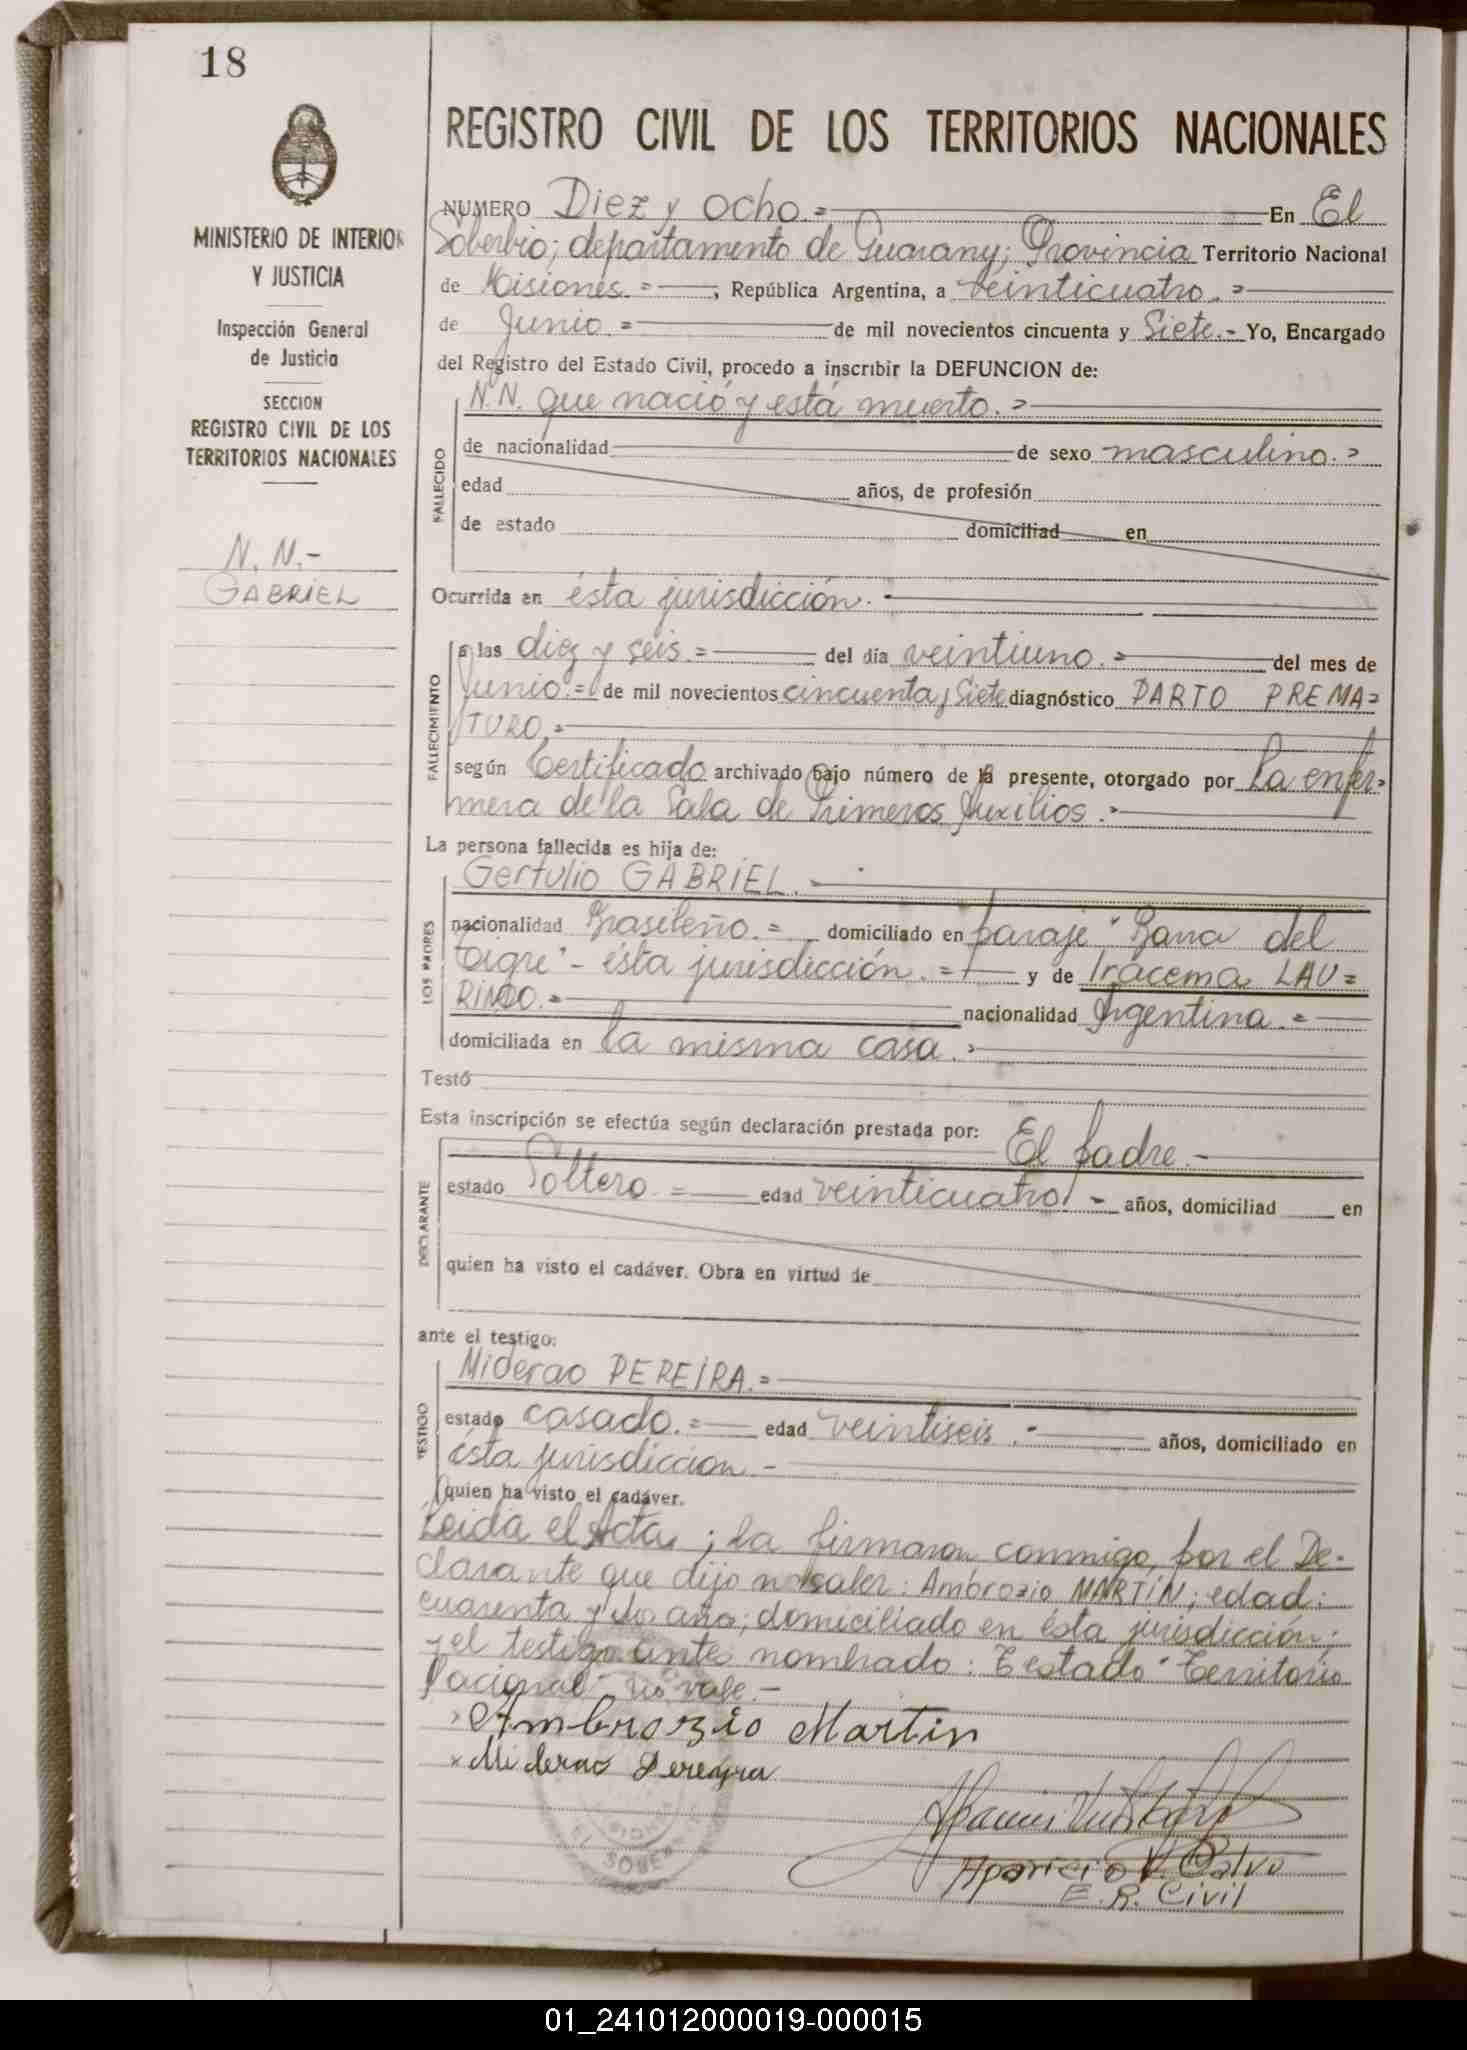 18
MINISTERIO DE INTERIOR
Y JUSTICIA
Inspección General
de Justicia
SECCION
REGISTRO CIVIL DE LOS
TERRITORIOS NACIONALES
N. N.-
GABRIEL
REGISTRO CIVIL DE LOS TERRITORIOS NACIONALES
NUMERO Diez y ocho.= En El
Soberbio; departamento de Guarany; Provincia Territorio Nacional
de Misiones.= ; República Argentina, a veinticuatro.=
de Junio.= de mil novecientos cincuenta y Siete.- Yo, Encargado
del Registro del Estado Civil, procedo a inscribir la DEFUNCION de:
N.N. que nació y está muerto.=
FALLECIDO
de nacionalidad de sexo masculino.=
edad años, de profesión
de estado domiciliad en
Ocurrida en ésta jurisdicción.=
FALLECIMIENTO
a las diez y seis.= del día veintiuno.= del mes de
Junio.= de mil novecientos cincuenta y Siete diagnóstico PARTO PREMA=
TURO.=
según Certificado archivado bajo número de la presente, otorgado por La enfer=
mera de la Sala de Primeros Auxilios.=
La persona fallecida es hija de:
Gertulio GABRIEL.-
LOS PADRES
nacionalidad Brasileño.= domiciliado en paraje "Barra del
Tigre"- ésta jurisdicción.= y de Iracema LAU=
RINDO.= nacionalidad Argentina.=
domiciliada en la misma casa.=
Testó
Esta inscripción se efectúa según declaración prestada por: El padre.-
DECLARANTE
estado Soltero.= edad veinticuatro.- años, domiciliad en
quien ha visto el cadáver. Obra en virtud de
ante el testigo:
Miderao PEREIRA.=
TESTIGO
estado casado.= edad veintiseis.- años, domiciliado en
ésta jurisdicción.-
quien ha visto el cadáver.
Leída el Acta; la firmaron conmigo, por el De-
clarante que dijo no saber: Ambrozio MARTIN; edad:
cuarenta y años; domiciliado en ésta jurisdicción;
y el testigo antes nombrado: Testado "Territorio
Nacional" no vale.-
Ambrozio Martin
x Miderao Pereyra
EL SOBERBIO
Aparicio V. Calvo
E. R. Civil
01_241012000019-000015